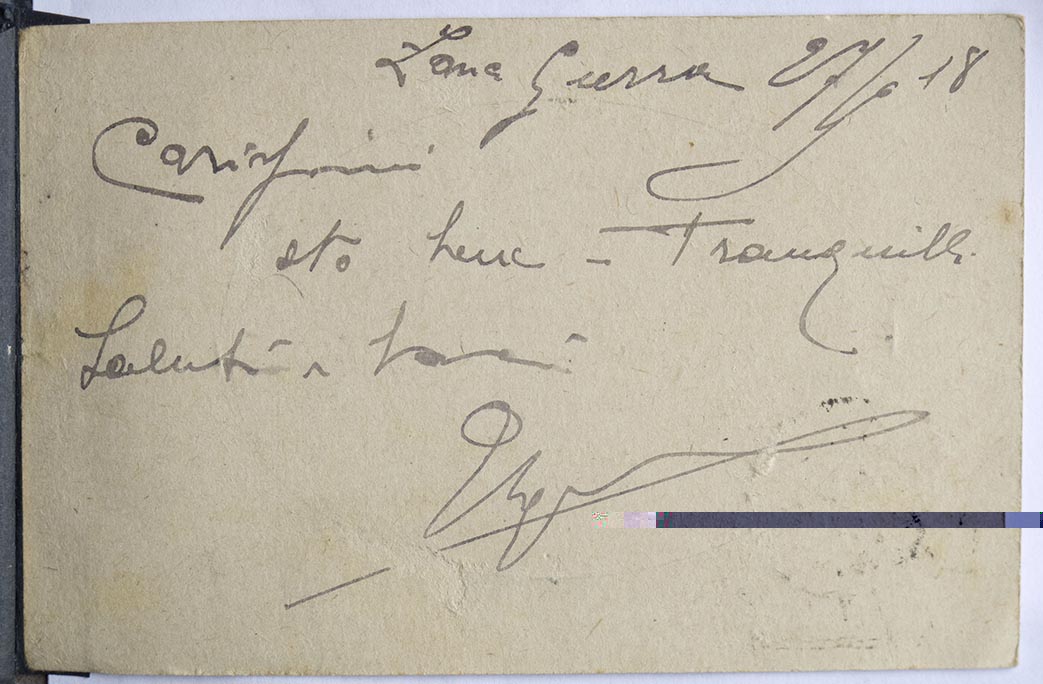 Zona Guerra 27/6 18
Carissimi
sto bene - Tranquilli.
Saluti e baci